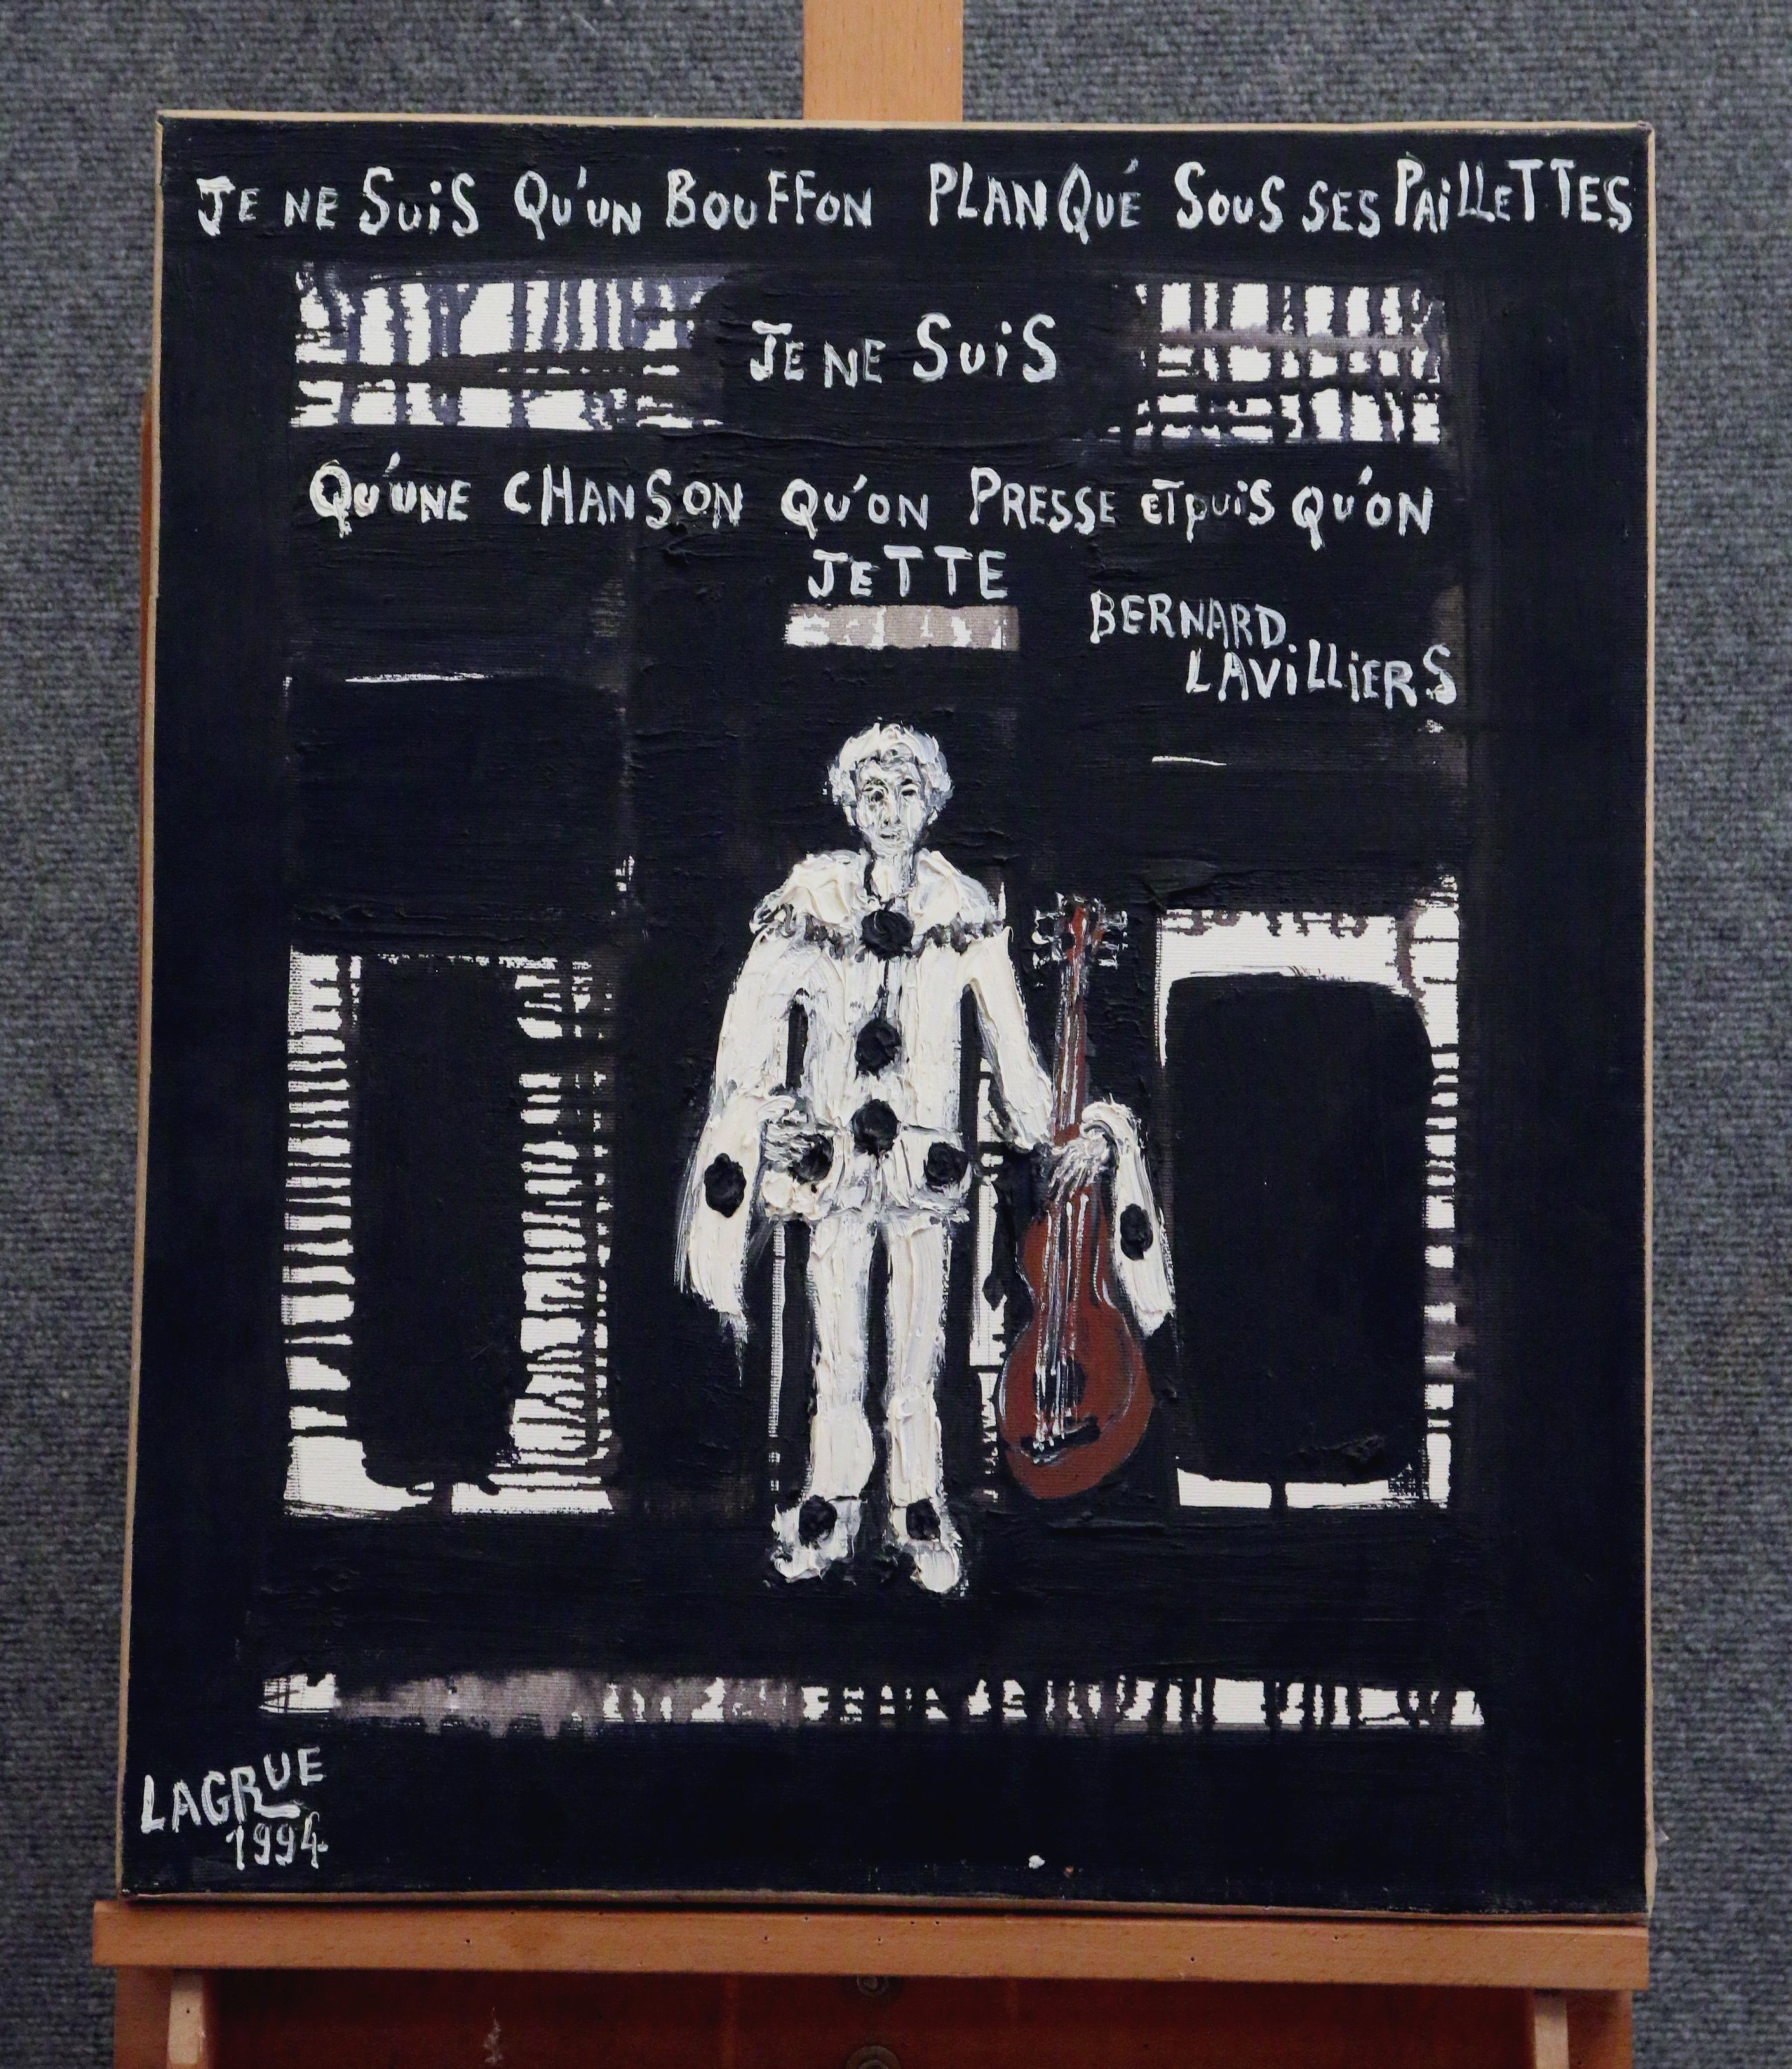 JE NE SUiS QU'UN BOUFFON PLANQUÉ SOUS SES PAiLLeTTES
JE NE SUiS
QU'UNE CHANSON QU'ON PRESSE eT puiS QU'ON
JeTTE
BERNARD
LAViLLiERS
LAGRUE
1994